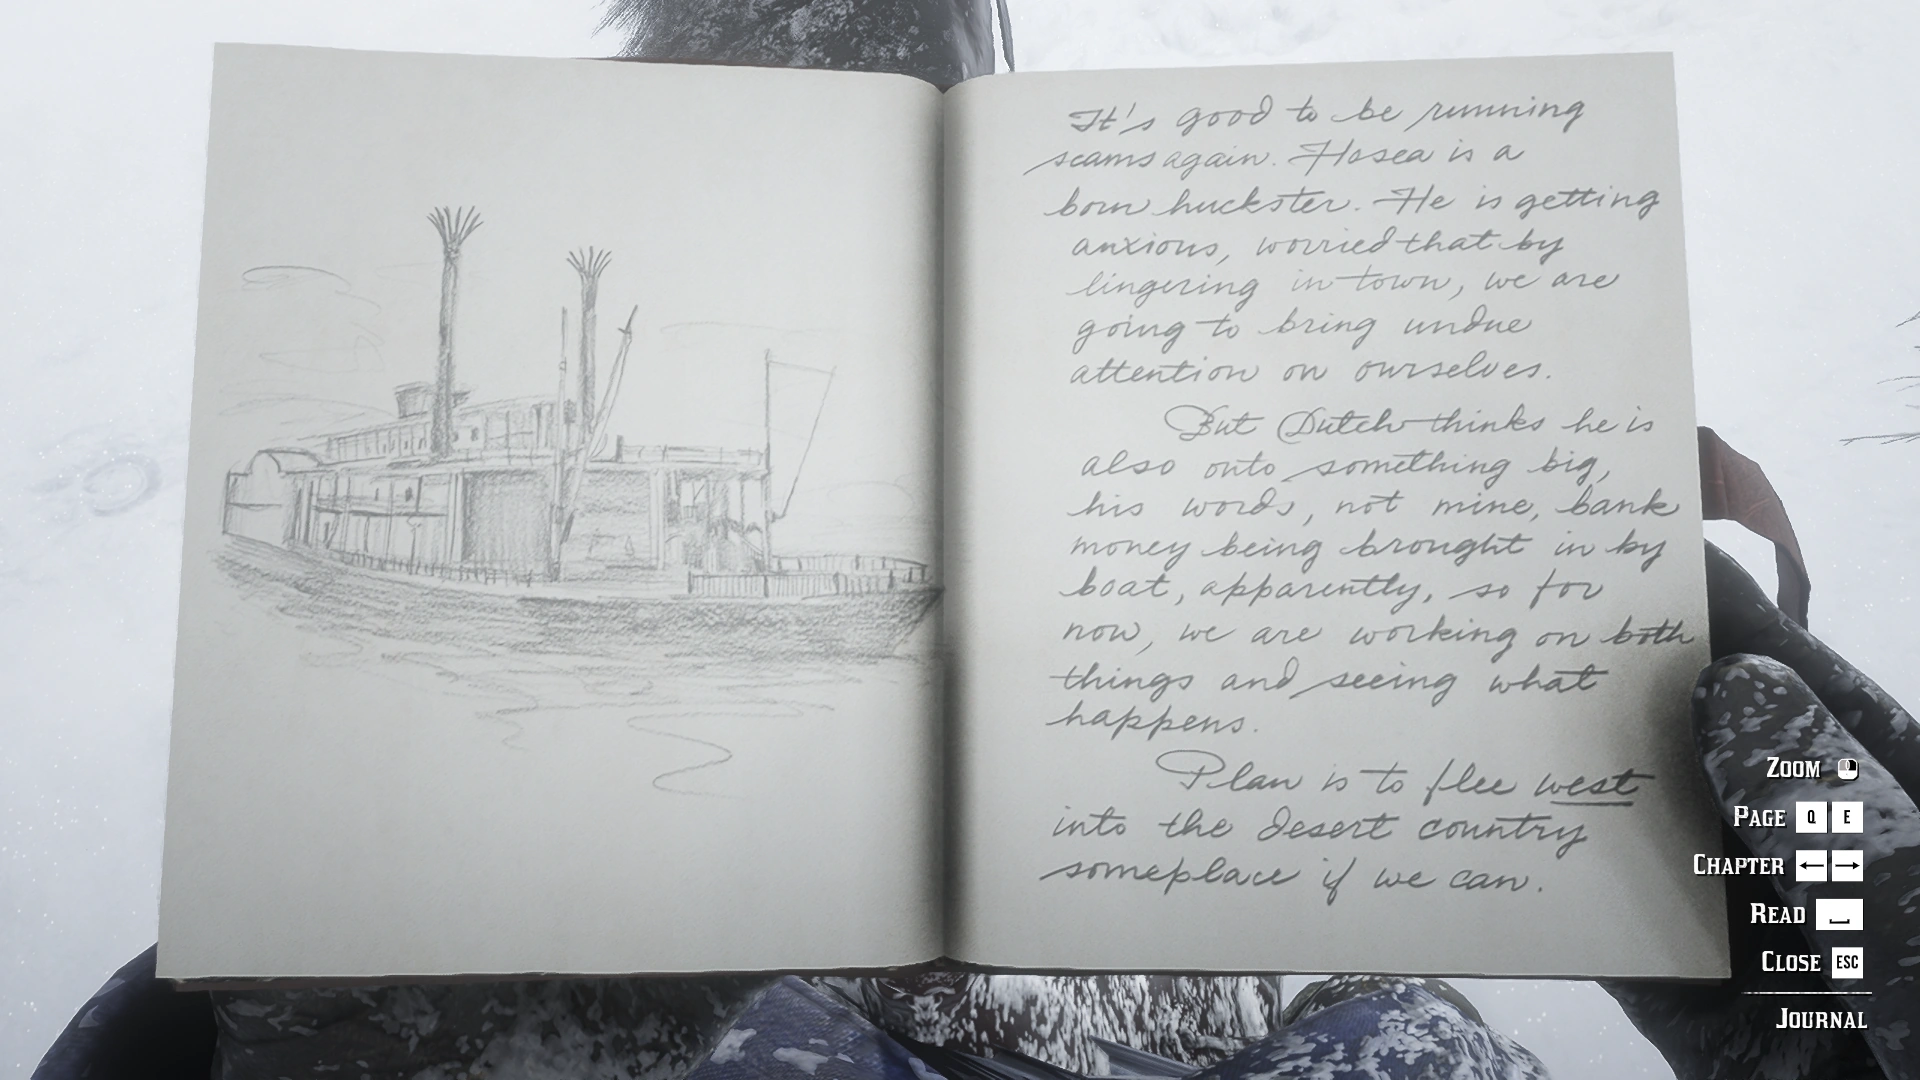 It's good to be running
scams again. Hosea is a
born huckster. He is getting
anxious, worried that by
lingering in town, we are
going to bring undue
attention on ourselves.
But Dutch thinks he is
also onto something big,
his words, not mine, bank
money being brought in by
boat, apparently, so for
now, we are working on both
things and seeing what
happens.
Plan is to flee west
into the desert country
someplace if we can.
ZOOM
PAGE Q E
CHAPTER ← →
READ
CLOSE ESC
JOURNAL